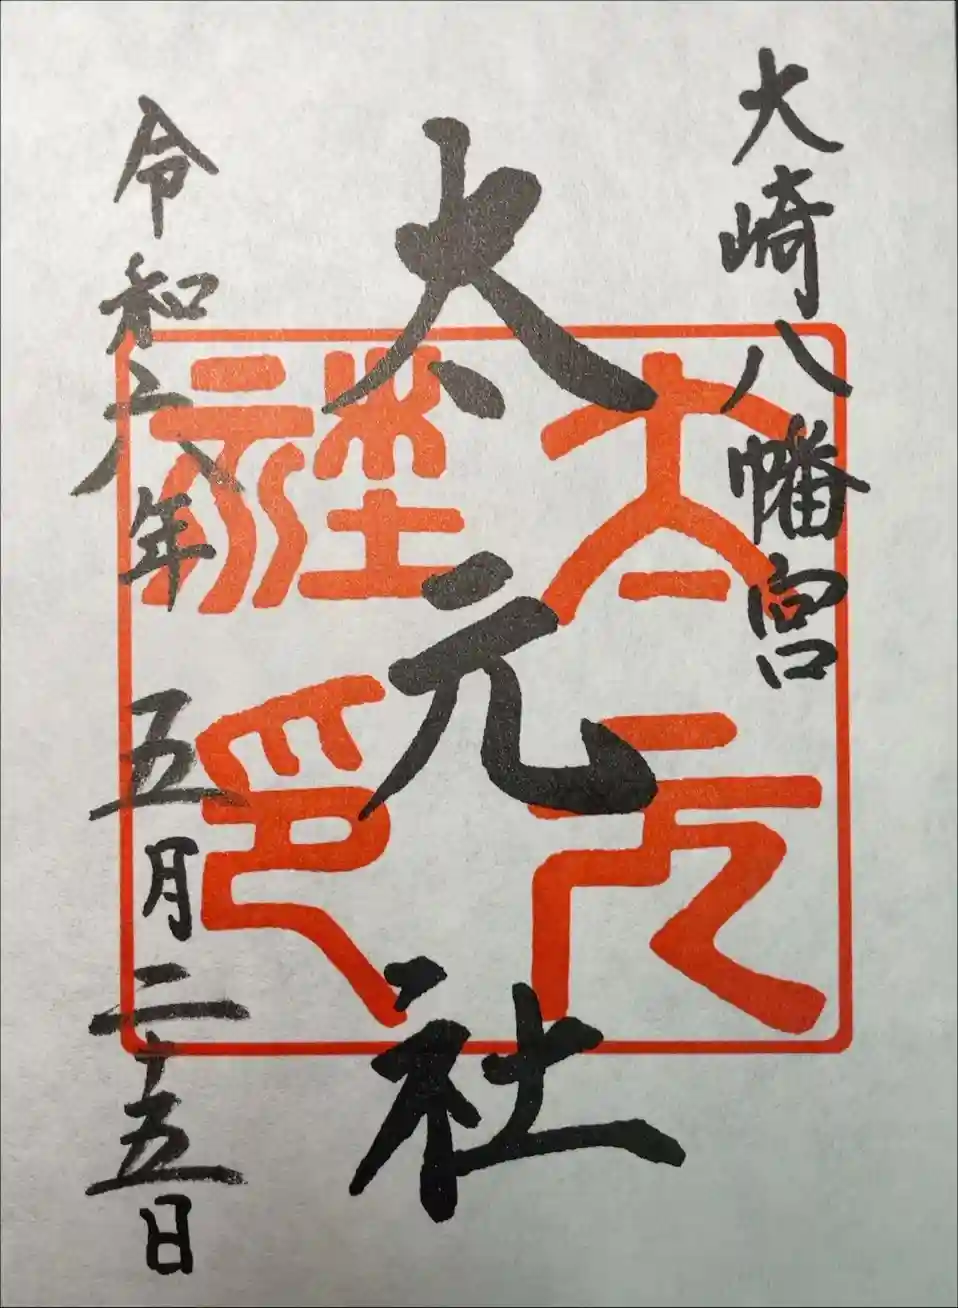 大崎八幡宮
太元社
太元社印
令和六年五月二十五日